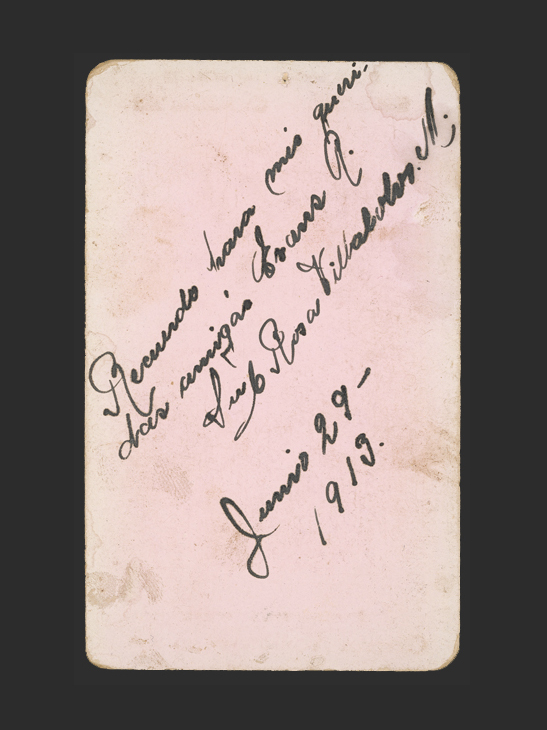 Recuerdo para mis queri-
das amigas Evans R.
Su C Rosa Villalobos. M.
Junio 29-
1913.